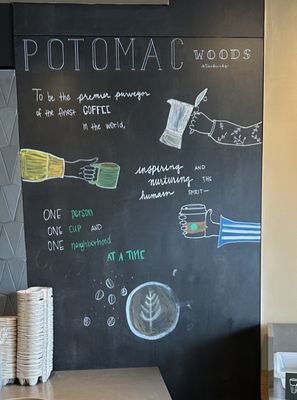 POTOMAC WOODS
Starbucks
To be the premier purveyor
of the finest COFFEE
in the world,
inspiring AND
nurturing THE
human SPIRIT—
ONE person
ONE CUP AND
ONE neighborhood
AT A TIME